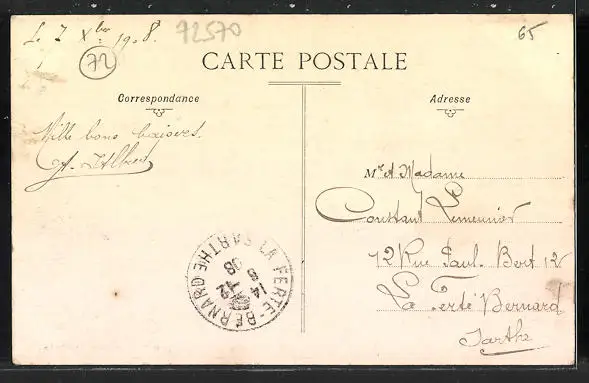 Le 7 Xbre 1908.
72570
65
72
CARTE POSTALE
Correspondance
Adresse
Mille bons baisers.
Mr et Madame
Constant Lemeunier
12 Rue Paul Bert 12
La Ferté Bernard
Sarthe
LA FERTE-BERNARD SARTHE
14
8-12
08